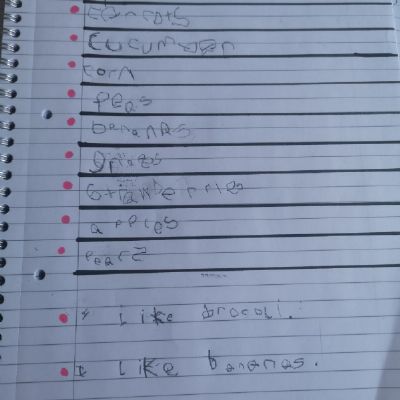 carrots
cucumber
corn
peas
bananas
strawberries
apples
pears
I like brocoli.
I like bananas.